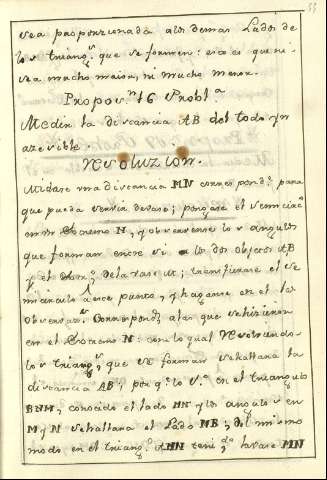 sea proporzionada alos demas Lados de
los triang.s que se formen: esto es que ni
sea mucho maior, ni mucho menor.
Propos.n 16 Probl.a
Medir la distancia AB del todo yn
azesible.
Resoluzion.
Midase una distancia MN correspond.te para
que pueda servir de vase; pongase el semicirc.o
en su extremo N, y observense los angulos
que forman entre si los dos objetos AB
y el extr.o de la vase M; transfierase el se
micirculo a este punto, y haganse en el las
observaz.s correspond.tes a las que se hizieron
en el extremo N: con lo qual resolviendo
los triang.s, que se forman se hallara la
distancia AB, por q.e lo 1.o en el triangulo
BNM, conocido el lado MN y los angulos en
M y N se hallara el Lado NB; del mismo
modo en el triang.o ANN teni.do la vase MN